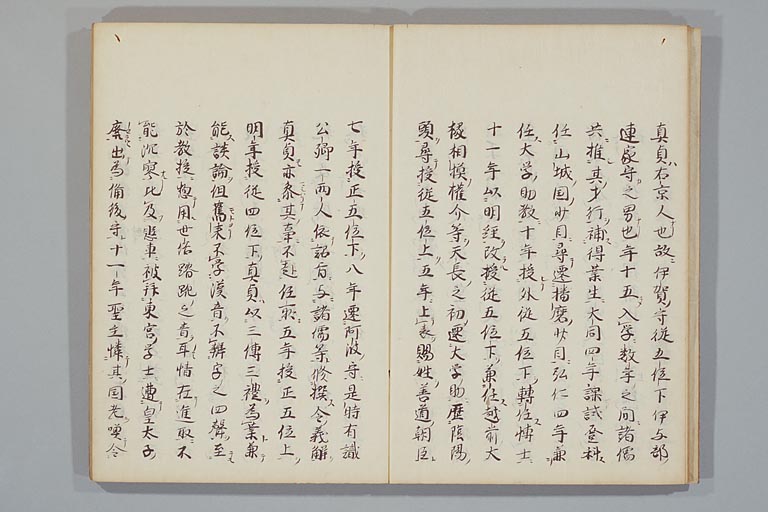 真貞右京人也故伊賀守従五位下伊与部
連家守之男也年十五入学数年之間諸儒
共推其才行補得業生大同四年課試登科
任山城国少目尋遷播磨少目弘仁四年兼
任大学助教十年授外従五位下轉任博士
十一年以明経改授従五位下兼任越前大
掾相模權介等天長之初遷大学助歴陰陽
頭尋授従五位上五年上表賜姓善道朝臣
七年授正五位下八年遷阿波守是時有議
公卿一両人依詔旨与諸儒等修撰令義解
真貞亦参其事不赴任所五年授正五位上
明年授従四位下真貞以三傳三禮為業兼
能談論但舊来不学漢音不辨字之四聲至
於教授惣用世俗踏訛之音耳情在進取不
能沈寥比及懸車被拜東宮学士遭皇太子
廃出為備後守十一年聖主憐其国老喚令